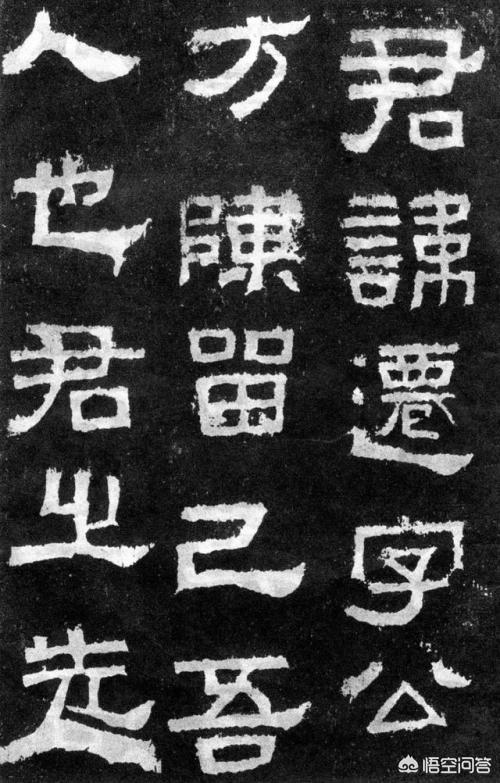 君諱遷字公
方陳留己吾
人也君之先
悟空问答